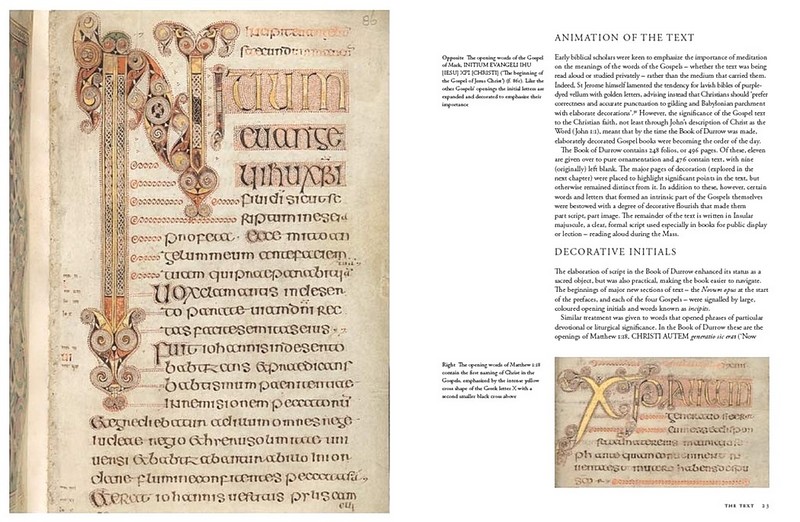 86
INitium
euange
lii ihu xpi
filii di sicut sc
riptum in esai
profeta · Ecce mitto an
gelum meum ante faciem
tuam qui
Uox clamantis in deser
to parate uiam dni rec
tas facite semitas eius
Fuit iohannis in deserto
babtizans et praedicans
babtismum paenitentiae
in remisionem peccatorum
omnes
iudeae regio
uersi et babtizabantur ab illo in ior
dane flumine confitentes peccata
Et erat iohannis uestitus pylis cam
eli
Opposite The opening words of the Gospel
of Mark, INITIUM EVANGELII IHU
[IESU] XPI [CHRISTI] ('The beginning of
the Gospel of Jesus Christ') (f. 86r). Like the
other Gospels' openings the initial letters are
expanded and decorated to emphasise their
importance
ANIMATION OF THE TEXT
Early biblical scholars were keen to emphasize the importance of meditation
on the meanings of the words of the Gospels – whether the text was being
read aloud or studied privately – rather than the medium that carried them.
Indeed, St Jerome himself lamented the tendency for lavish bibles of purple-
dyed vellum with golden letters, advising instead that Christians should 'prefer
correctness and accurate punctuation to gilding and Babylonian parchment
with elaborate decorations'. However, the significance of the Gospel text
to the Christian faith, not least through John's description of Christ as the
Word (John 1:1), meant that by the time the Book of Durrow was made,
elaborately decorated Gospel books were becoming the order of the day.
The Book of Durrow contains 248 folios, or 496 pages. Of these, eleven
are given over to pure ornamentation and 476 contain text, with nine
(originally) left blank. The major pages of decoration (explored in the
next chapter) were placed to highlight significant points in the text, but
otherwise remained distinct from it. In addition to these, however, certain
words and letters that formed an intrinsic part of the Gospels themselves
were bestowed with a degree of decorative flourish that made them
part script, part image. The remainder of the text is written in Insular
majuscule, a clear, formal script used especially in books for public display
or lection – reading aloud during the Mass.
DECORATIVE INITIALS
The elaboration of script in the Book of Durrow enhanced its status as a
sacred object, but was also practical, making the book easier to navigate.
The beginnings of major new sections of text – the Novum opus at the start
of the prefaces, and each of the four Gospels – were signalled by large,
coloured opening initials and words known as incipits.
Similar treatment was given to words that opened phrases of particular
devotional or liturgical significance. In the Book of Durrow these are the
openings of Matthew 1:18, CHRISTI AUTEM generatio sic erat ('Now
Right The opening words of Matthew 1:18
contain the first naming of Christ in the
Gospels, emphasised by the intense yellow
cross shape of the Greek letter X with a
second smaller black cross above
THE TEXT 23